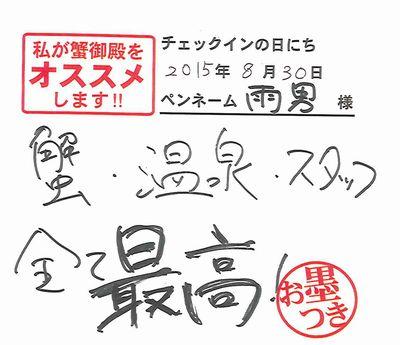 私が蟹御殿を
オススメ
します!!
チェックインの日にち
2015年8月30日
ペンネーム 雨男 様
蟹・温泉・スタッフ
全て最高!
お墨つき